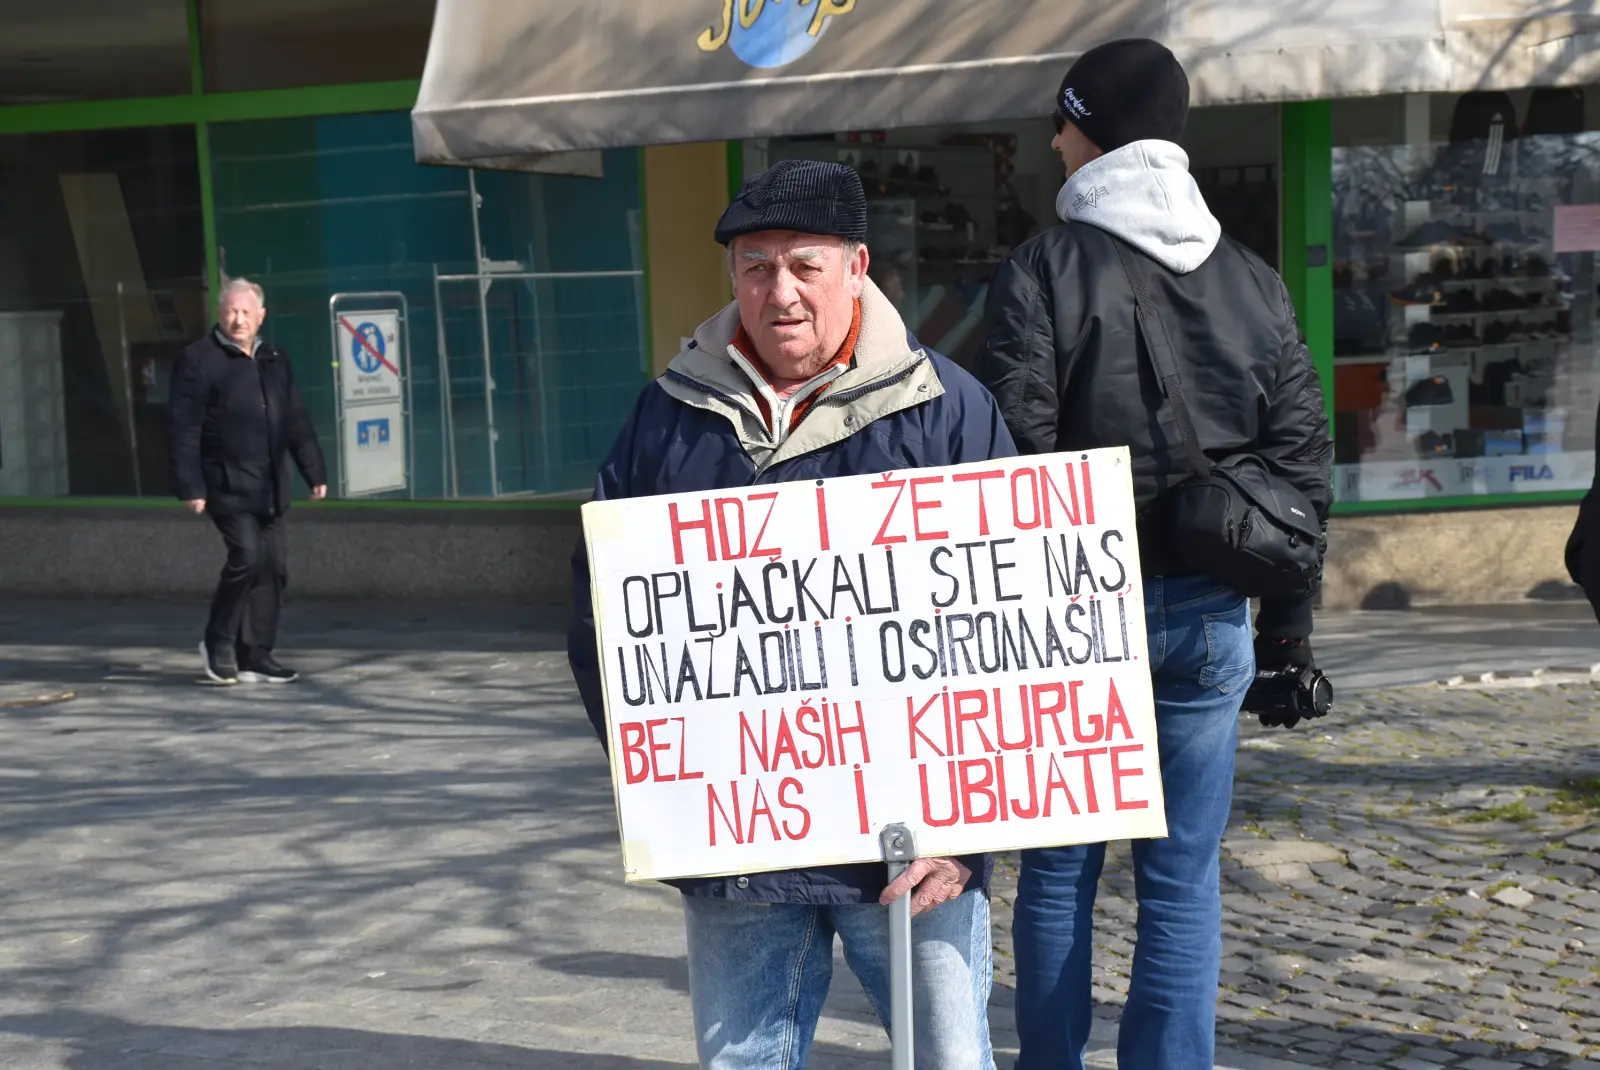 Jump
Garden
HDZ I ŽETONI
OPLjAČKALI STE NAS,
UNAZADILI I OSIROMAŠILI.
BEZ NAŠIH KIRURGA
NAS I UBIJATE
SONY
FILA